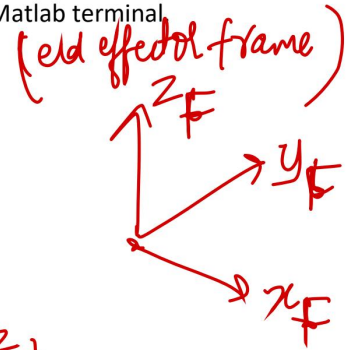 Matlab terminal
(eld effector frame)
z_F
y_F
x_F